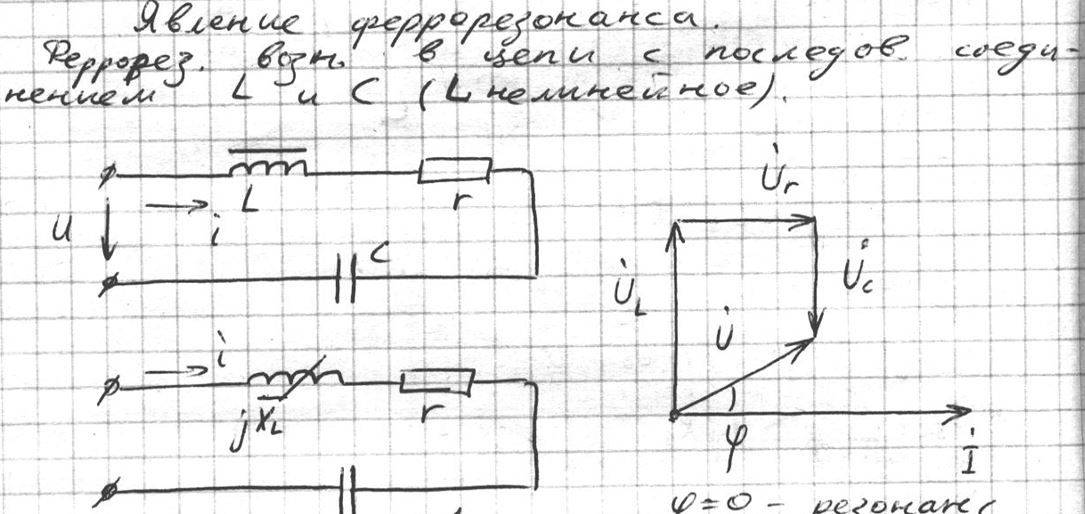 Явление феррорезонанса.
Феррорез. возн. в цепи с послед. соеди-
нением L и C (L нелинейное).
L
r
u
i
C
U̇r
U̇L
U̇c
U̇
i
jXL
r
φ
İ
φ=0 - резонанс